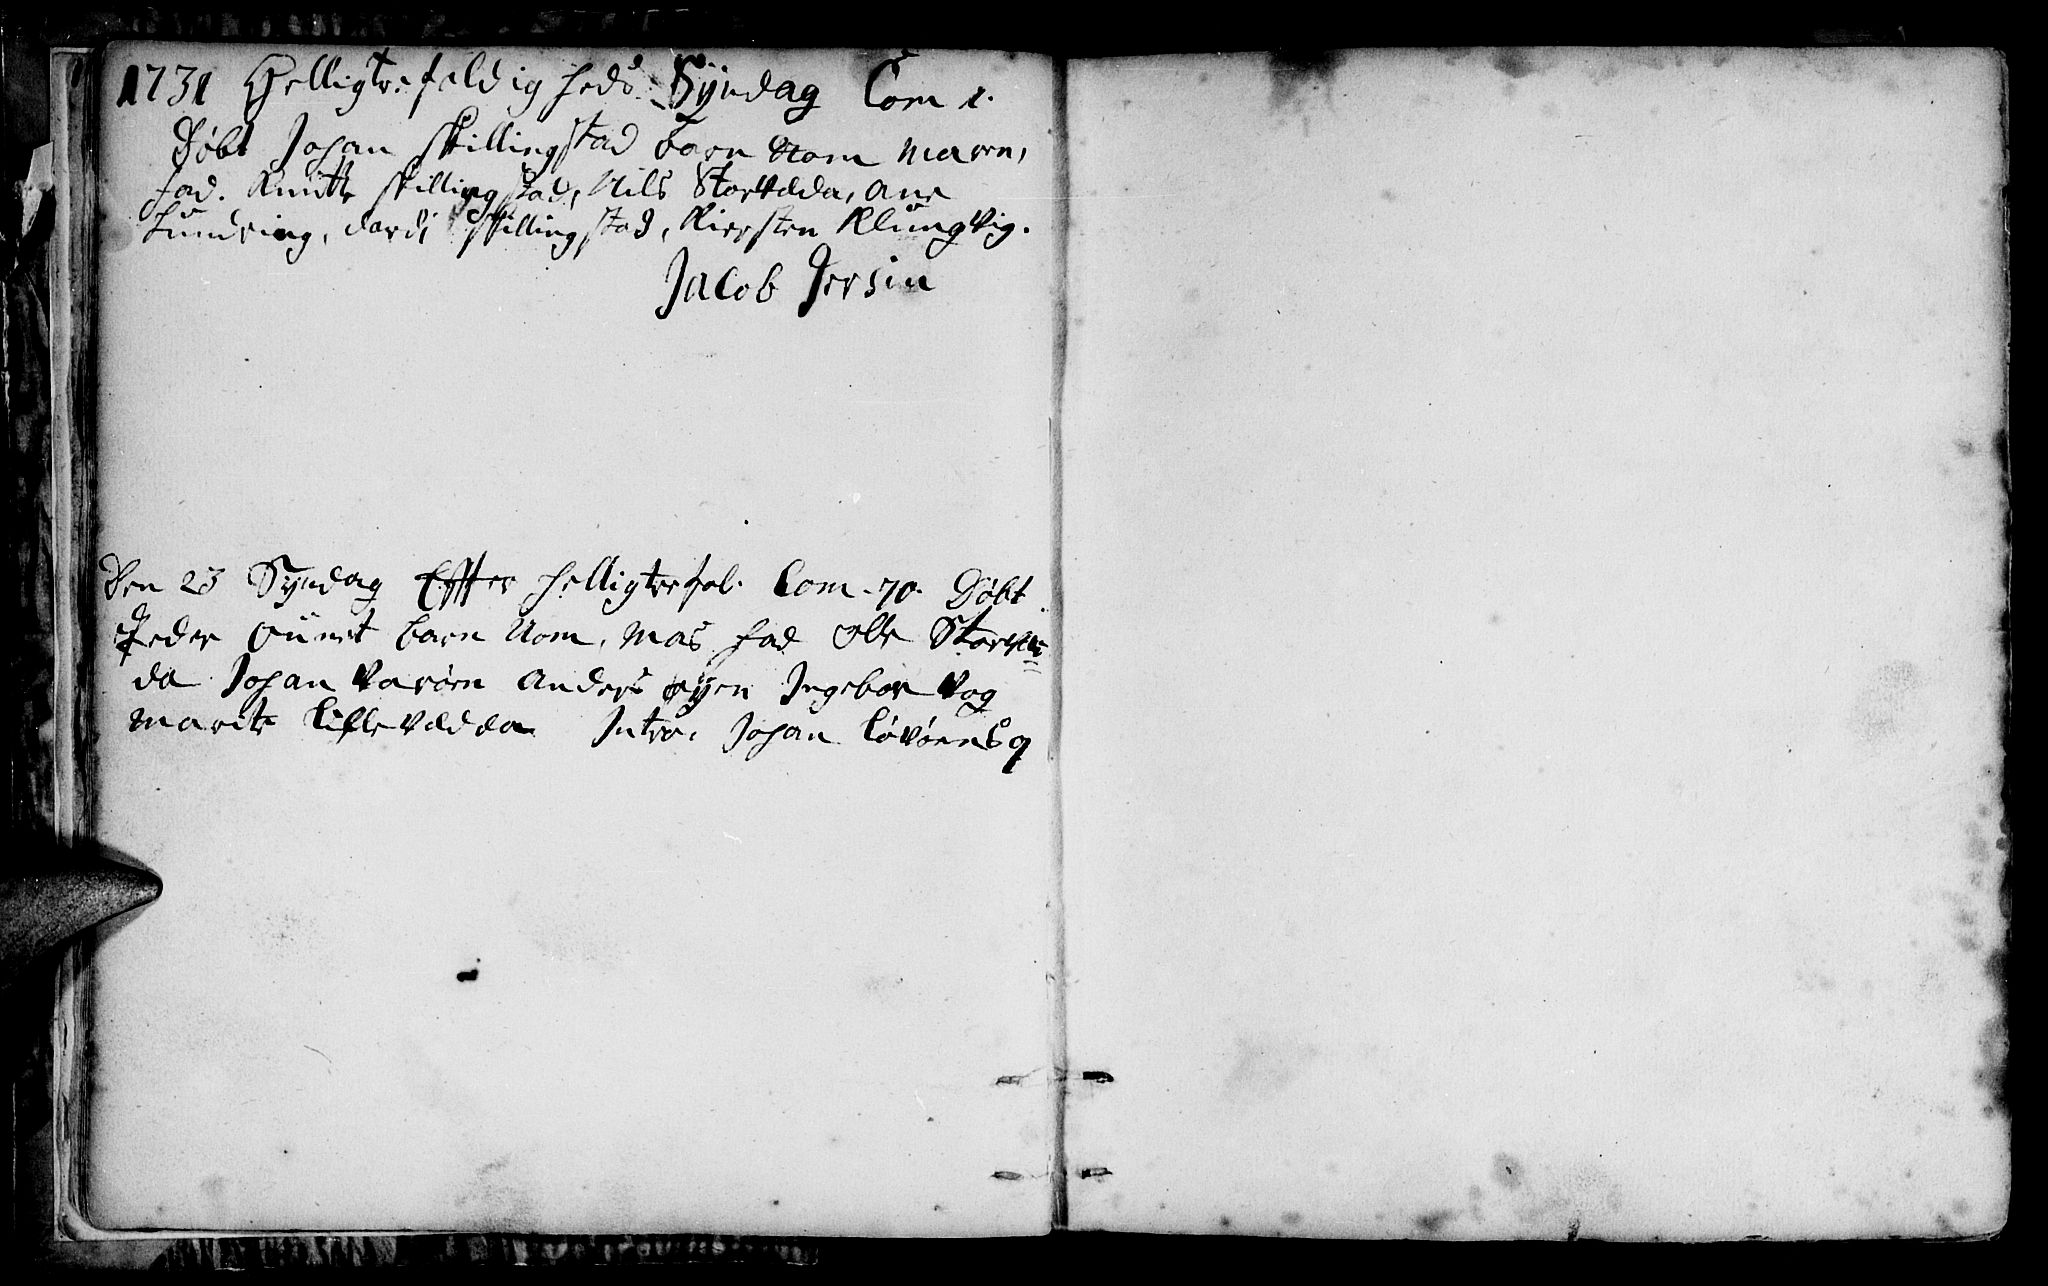 1731 Helligtrefoldigheds Syndag Com 1.
Døbt Johan Skillingstad barn Nom Maren,
fad. Knutt Skillingstad, Nils Storvedda, Ane
Lundring, dordi Skillingstad, Kiersten Klungvig.
Jacob Jersin
Den 23 Syndag Effter helligtrefol. Com. 70. Døbt
Peder barn Nom, Mas fad Olle Storve=
da Johan Varøen Anders øyen Ingebor Vog
Marit Lillevedda Intro. Johan Løvøens q